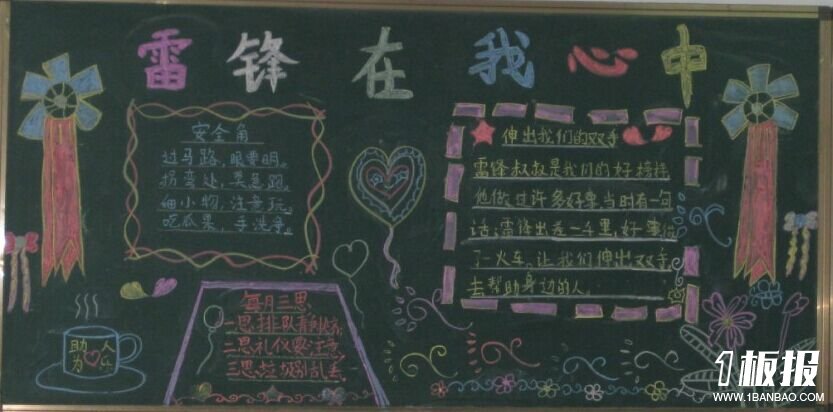 雷锋在我心中
安全角
过马路，眼要明。
拐弯处，莫急跑。
细小物，注意玩。
吃瓜果，手洗净。
伸出我们的双手
雷锋叔叔是我们的好榜样
他做过许多好事当时有一句
话：雷锋出差一千里，好事做
了一火车。让我们伸出双手
去帮助身边的人。
每月三思
一思排队静
二思礼仪要注意
三思垃圾别乱丢
助人
为乐
1板报
WWW.1BANBAO.COM